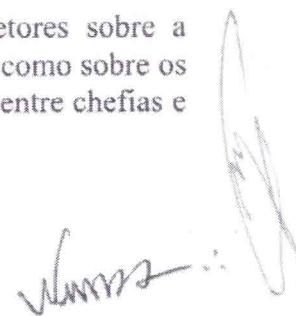 etores sobre a
como sobre os
entre chefias e